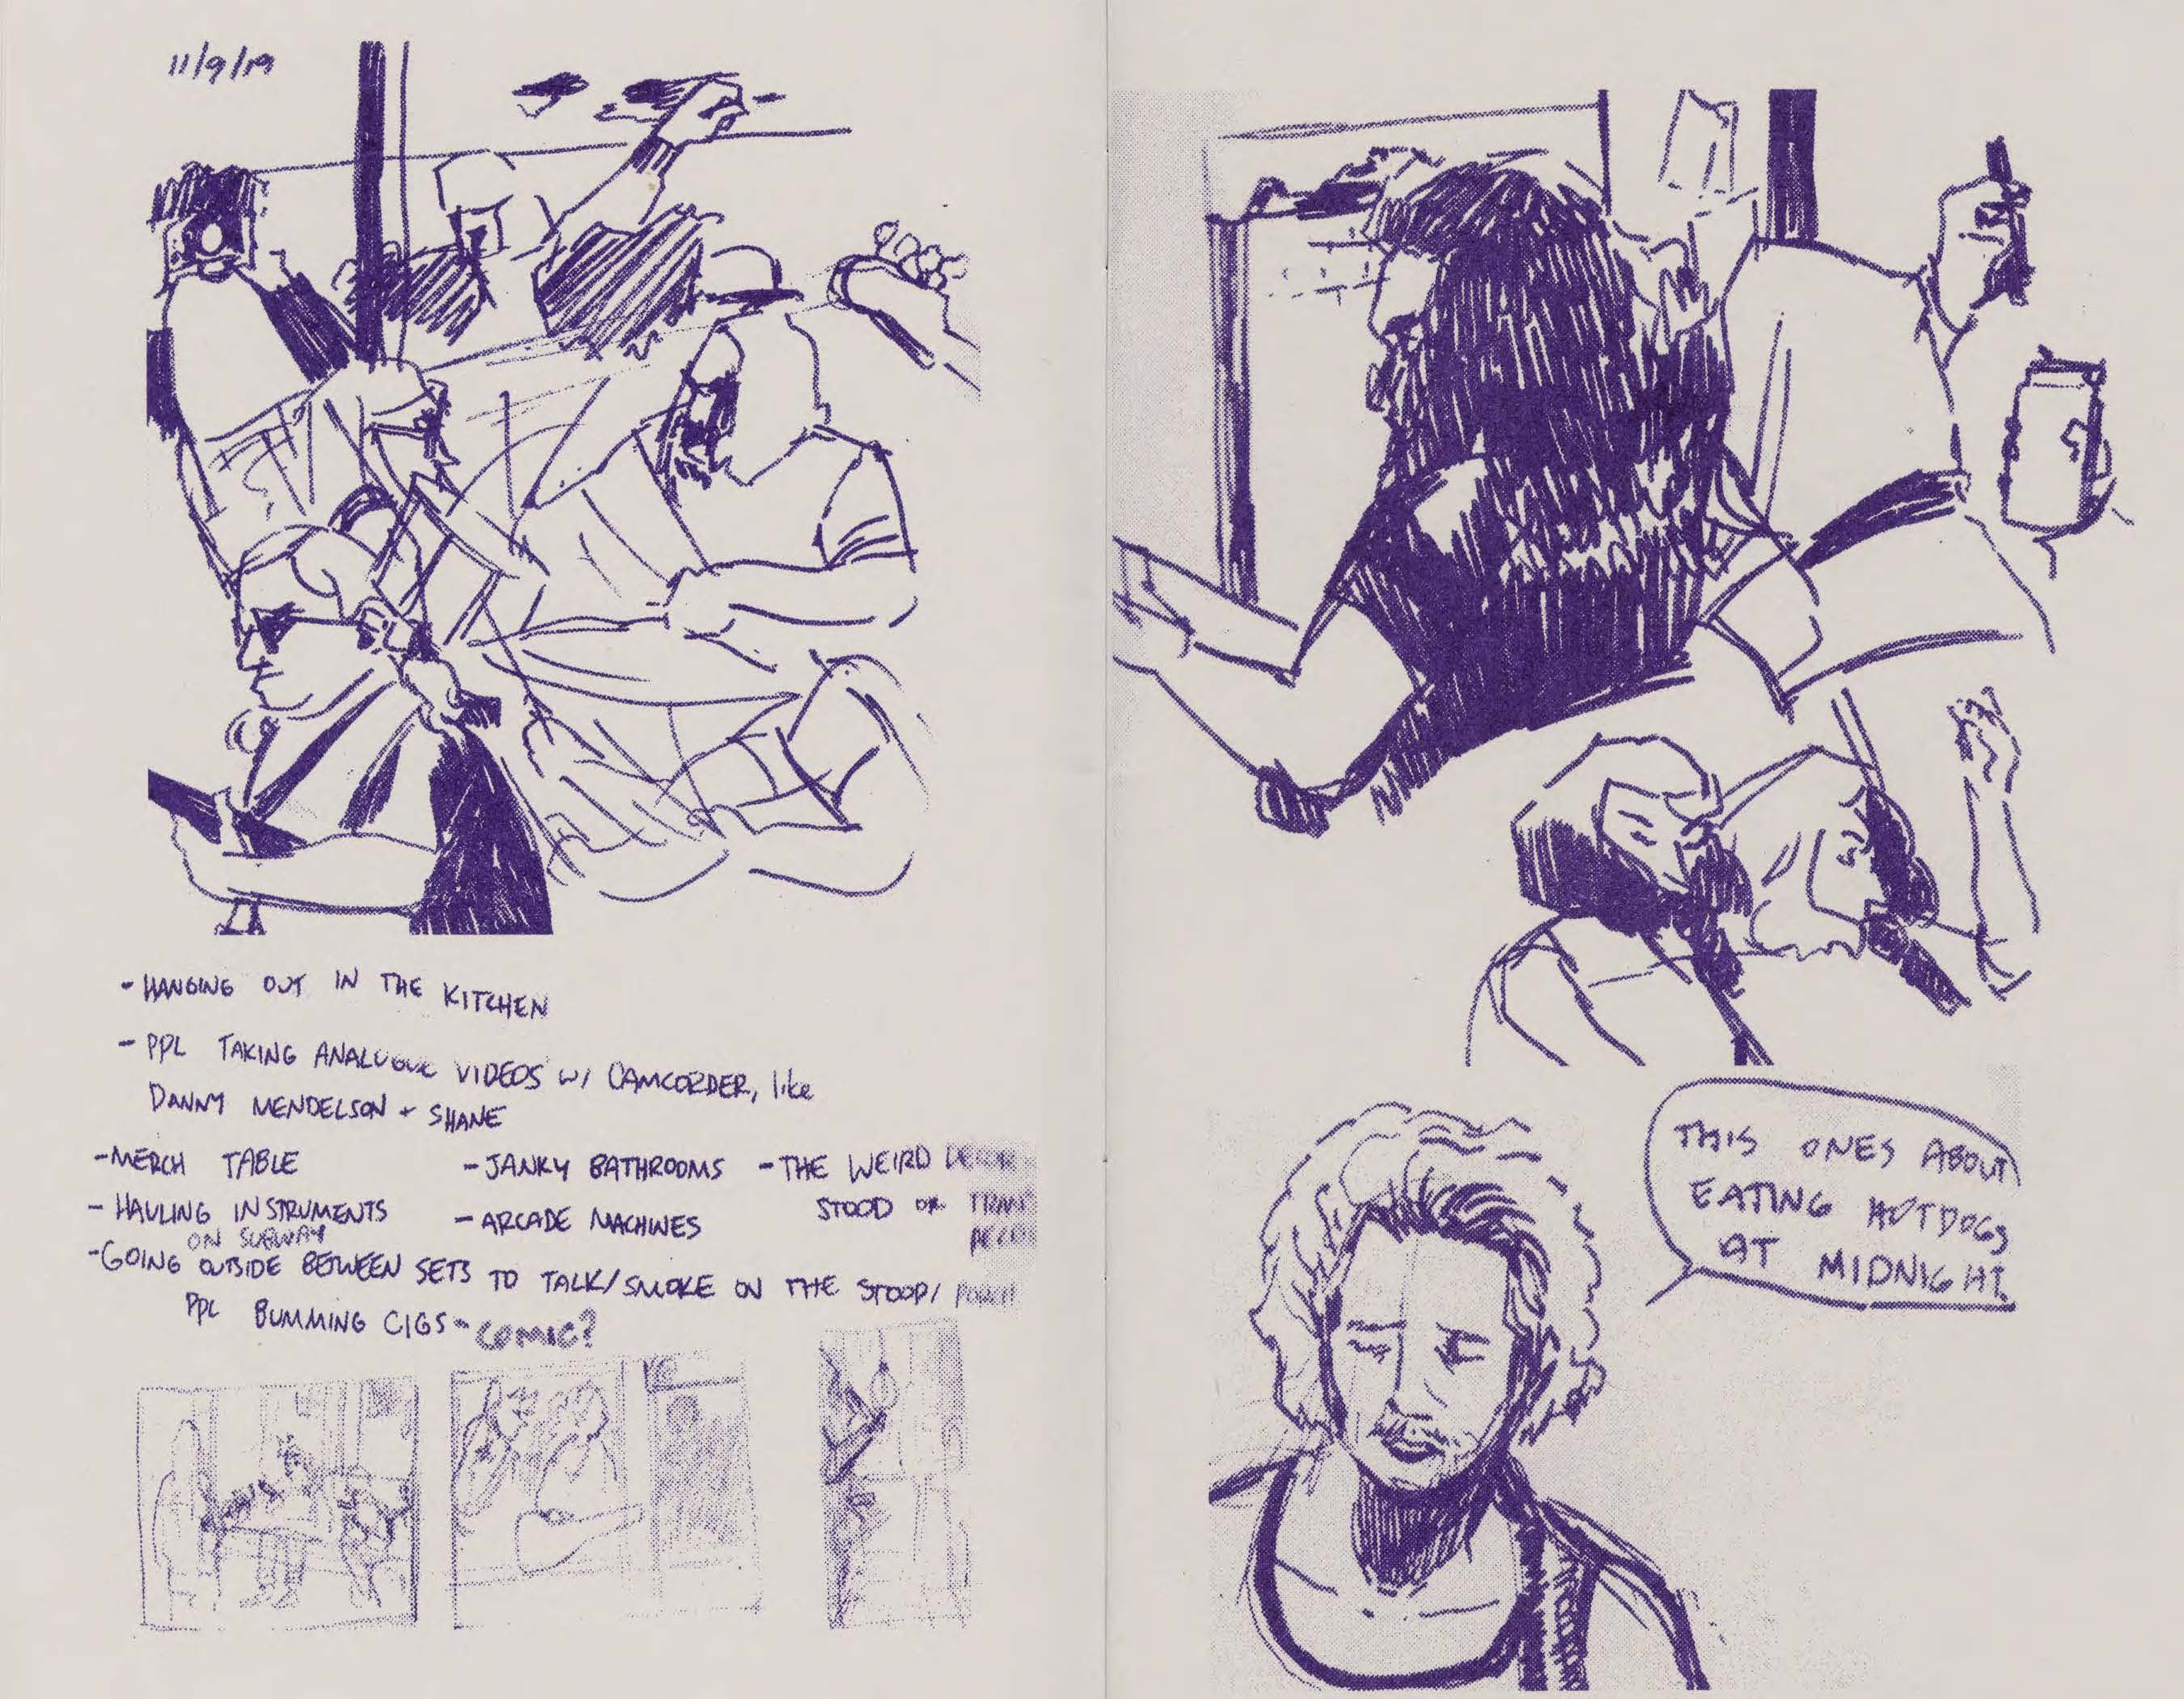 11/9/19
- HANGING OUT IN THE KITCHEN
- PPL TAKING ANALOGUE VIDEOS W/ CAMCORDER, like
DANNY MENDELSON + SHANE
- MERCH TABLE
- HAULING INSTRUMENTS
ON SUBWAY
- JANKY BATHROOMS
- ARCADE MACHINES
- THE WEIRD
STOOD OR
- GOING OUTSIDE BETWEEN SETS TO TALK/SMOKE ON THE STOOP/ PORCH
PPL BUMMING CIGS - COMIC?
THIS ONES ABOUT
EATING HOTDOGS
AT MIDNIGHT